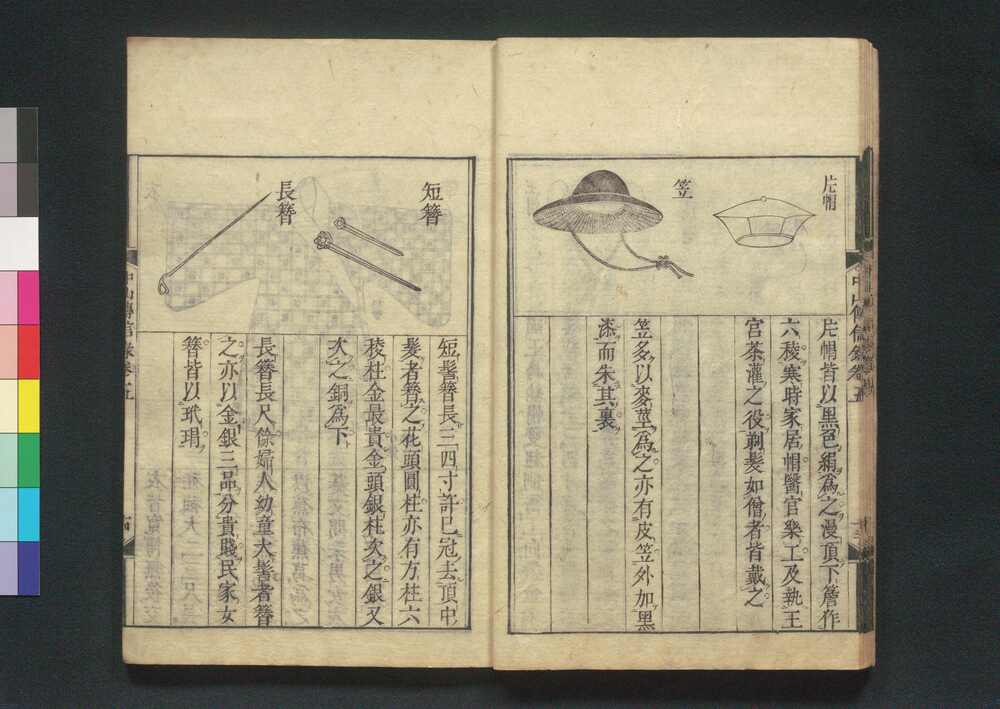 片帽
笠
片帽皆以黒色絹為之漫頂下簷作
六稜寒時家居帽醫官樂工及執王
宮茶灌之役剃髪如僧者皆戴之
笠多以麥莖為之亦有皮笠外加黒
漆而朱其裏
中山傳信録巻五
短簪
長簪
短簪長三四寸許已冠去頂中
髪者簪之花頭圓柱亦有方柱六
稜柱金最貴金頭銀柱次之銀又
次之銅為下
長簪長尺餘婦人幼童大髻者簪
之亦以金銀三品分貴賤民家女
簪皆以玳瑁
中山傳信録巻五